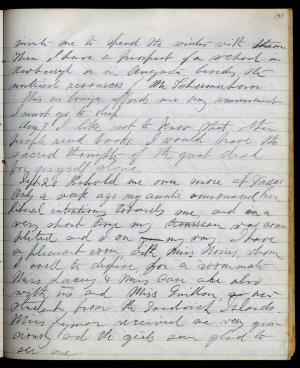 191
invite me to spend the winter with them
Then I have a prospect of a school in
Newburgh or in Augusta besides the
musical resources of
This
I must go to sleep
Aug. 7 I like not to know that other
people read books. I would have the
sacred thoughts of the great dead
for myself alone.
Sept. 23 Behold me once more at Vassar
Only a week ago my auntie announced her
liberal intentions towards me, and in a
very short time my trousseau was com
pleted and I on my way. I have
a pleasant room with Miss whom
I used to desire for a roommate
Miss & Miss Case are also
with us and Miss a new
student from the Sandwich Islands
Miss Lyman received me very gra
ciously and the girls seem glad to
see me